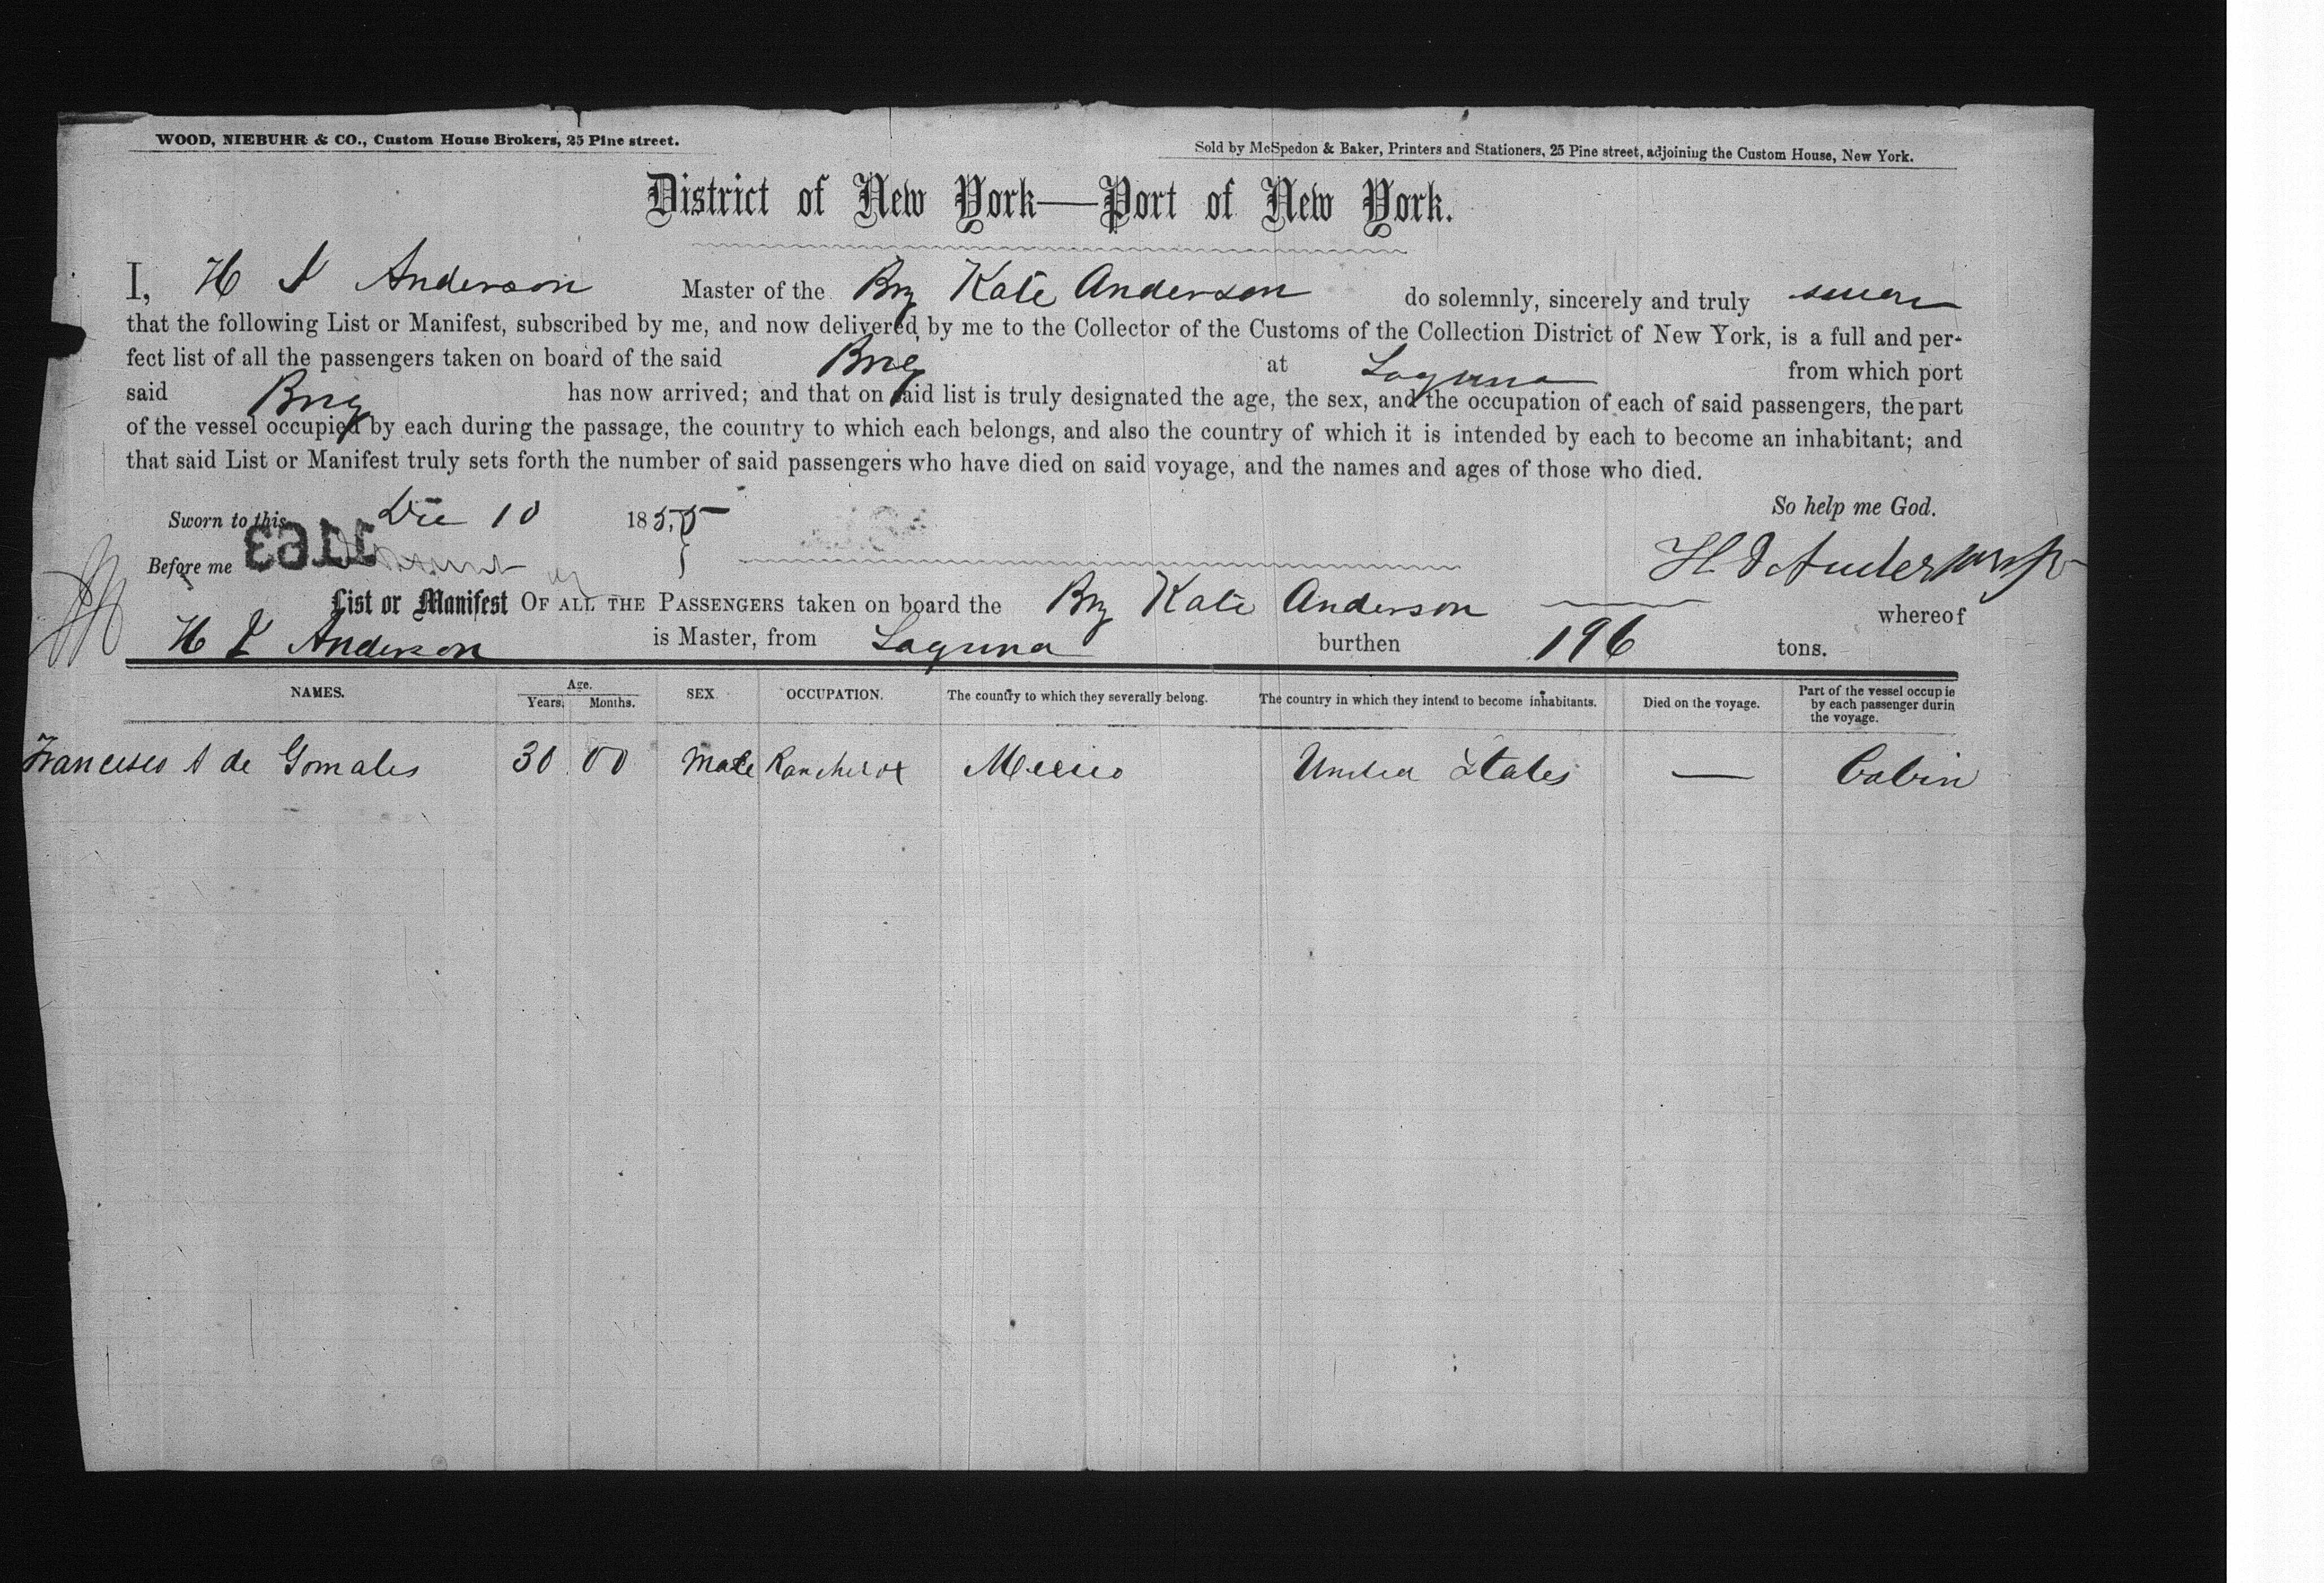 WOOD, NIEBUHR & CO., Custom House Brokers, 25 Pine street.
Sold by McSpedon & Baker, Printers and Stationers, 25 Pine street, adjoining the Custom House, New York.
District of New York—Port of New York.
I, H Anderson Master of the Brig Kate Anderson do solemnly, sincerely and truly swear
that the following List or Manifest, subscribed by me, and now delivered by me to the Collector of the Customs of the Collection District of New York, is a full and per-
fect list of all the passengers taken on board of the said Brig at Laguna from which port
said Brig has now arrived; and that on said list is truly designated the age, the sex, and the occupation of each of said passengers, the part
of the vessel occupied by each during the passage, the country to which each belongs, and also the country of which it is intended by each to become an inhabitant; and
that said List or Manifest truly sets forth the number of said passengers who have died on said voyage, and the names and ages of those who died.
So help me God.
Sworn to this Dec 10 1855
Before me 1163 H Anderson
List or Manifest OF ALL THE PASSENGERS taken on board the Brig Kate Anderson whereof
H Anderson is Master, from Laguna burthen 196 tons.
NAMES. Age. Years. Months. SEX OCCUPATION. The country to which they severally belong. The country in which they intend to become inhabitants. Died on the voyage. Part of the vessel occupie by each passenger durin the voyage.
Francisco A de Gomales 30 00 Male Mexico United States — Cabin